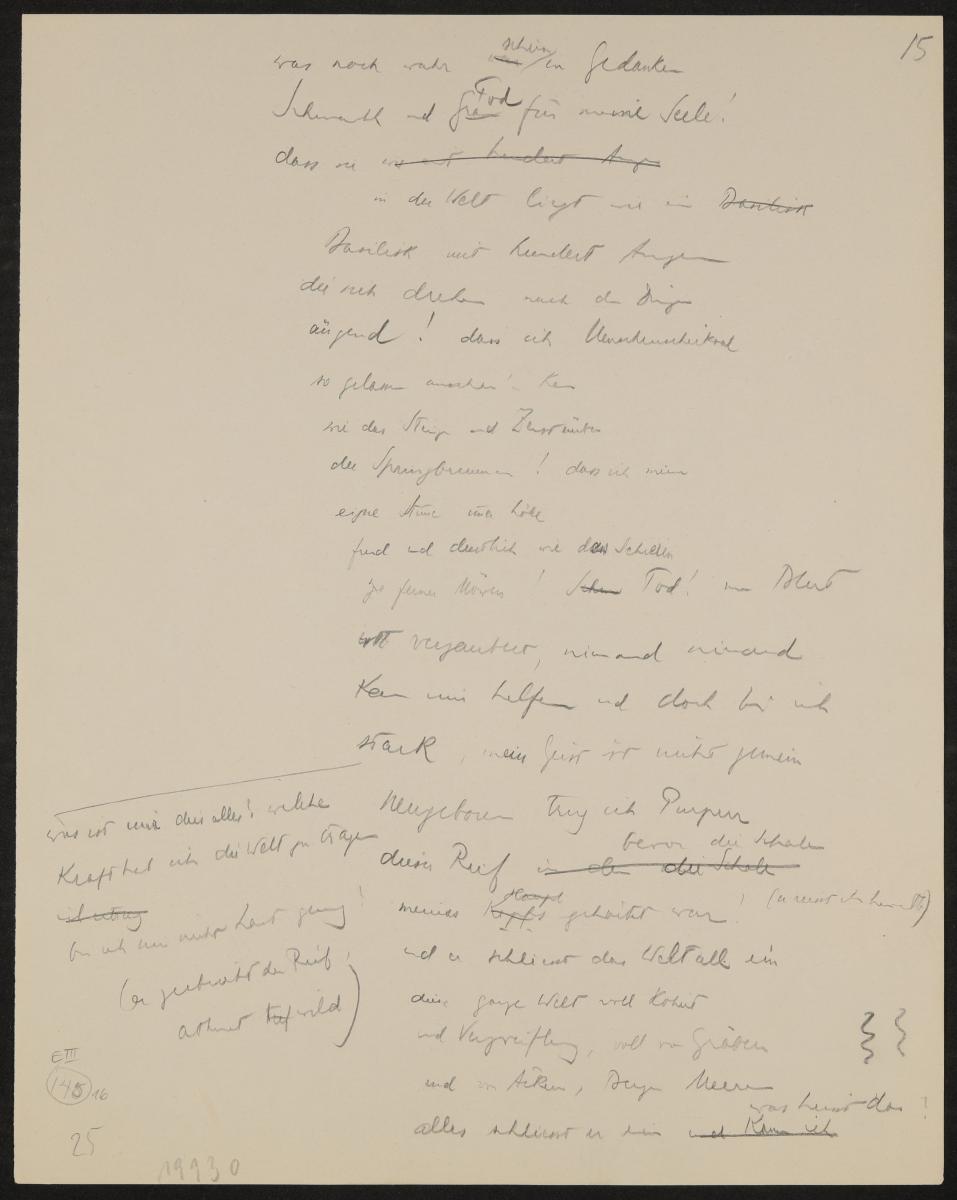 15
was noch wahr schien in Gedanken
und Tod für meine Seele!
dass sie wie mit hundert Augen
in der Welt liegt wie ein Basilisk
Basilisk mit hundert Augen
die sich drehen nach den Dingen
äugend! dass ich Menschenschicksal
so gelassen ansehen kann
wie das Steigen und Zerstäuben
der Springbrunnen! dass ich meine
eigne Stimme immer höre
fremd und deutlich wie das Schreien
ferner Möwen! Tod! mein Blut
ist verzaubert, niemand niemand
kann mir helfen und doch bin ich
stark, mein Geist ist nicht gemein
Neugeboren trug ich Purpur
bevor die Schale
diesen Reif in dem die Schale
Haupt
meines Kopfs gehärtet war!
und er schliesst das Weltall ein
diese ganze Welt voll Hoheit
und Verzweiflung, voll von Gräbern
und von Äckern, Bergen Meeren
was heisst das?
alles schliesst er ein und kann ich
was ist mir dies alles! welche
Kraft hab ich die Welt zu tragen
bin ich mir nicht Last genug!
(er zerbricht den Reif,
atmet tief wild)
E III
145
16
25
19930